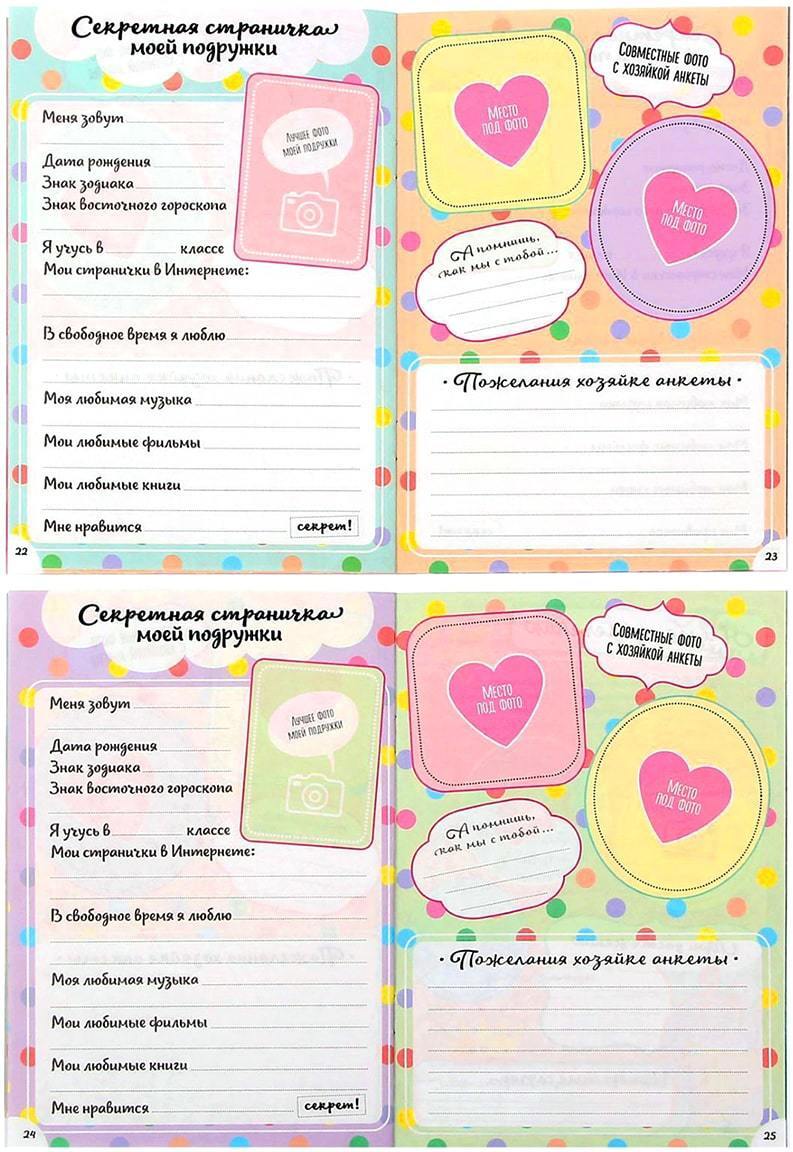 Секретная страничка
моей подружки
Меня зовут
Дата рождения
Знак зодиака
Знак восточного гороскопа
Я учусь в классе
Мои странички в Интернете:
В свободное время я люблю
Моя любимая музыка
Мои любимые фильмы
Мои любимые книги
Мне нравится секрет!
22
Лучшее фото
моей подружки
Место
под фото
Совместные фото
с хозяйкой анкеты
Место
под фото
А помнишь,
как мы с тобой...
· Пожелания хозяйке анкеты ·
23
Секретная страничка
моей подружки
Меня зовут
Дата рождения
Знак зодиака
Знак восточного гороскопа
Я учусь в классе
Мои странички в Интернете:
В свободное время я люблю
Моя любимая музыка
Мои любимые фильмы
Мои любимые книги
Мне нравится секрет!
24
Лучшее фото
моей подружки
Место
под фото
Совместные фото
с хозяйкой анкеты
Место
под фото
А помнишь,
как мы с тобой...
· Пожелания хозяйке анкеты ·
25